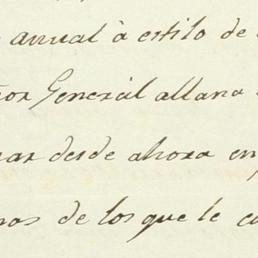 anual à estilo de
General allana
desde ahora en
nos de los que le co